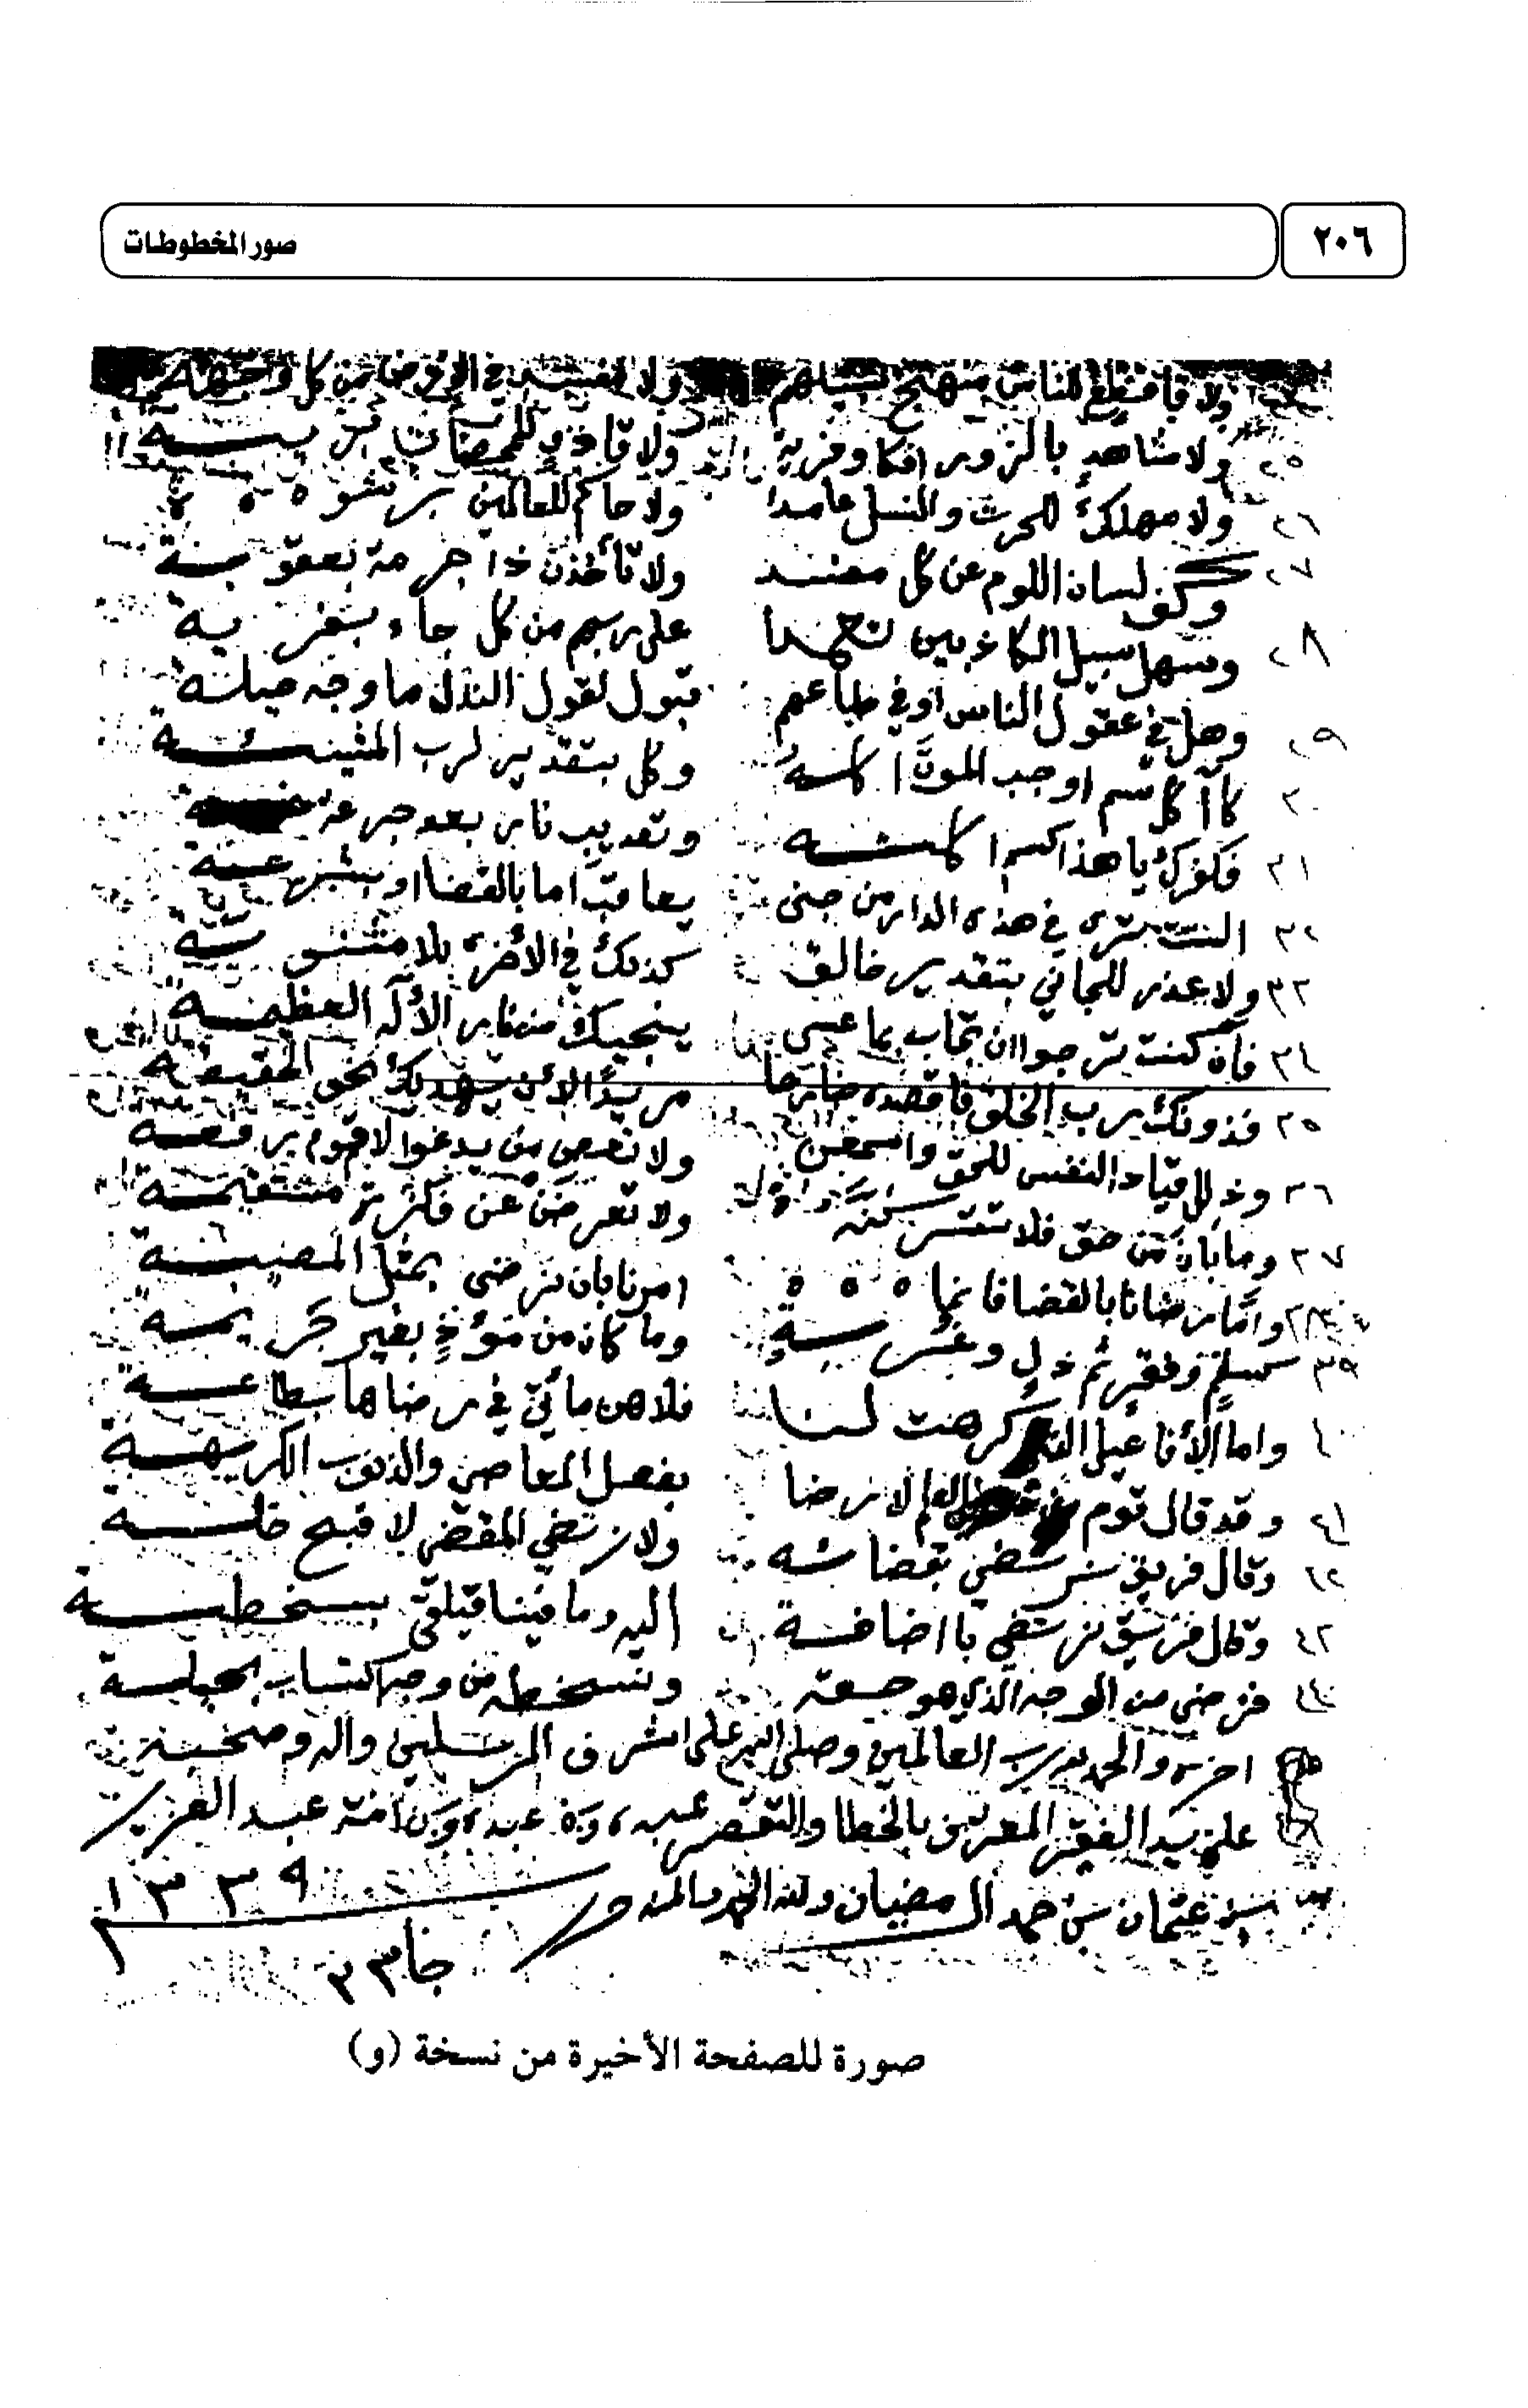 ٢٠٦
صور المخطوطات
ولا قاطع للناس منهج سبيلهم ولا مفسد في الأرض من كل وجهة
٢٥ ولا شاهد بالزور افكا وفرية ولا قاذف للمحصنات
٢٦ ولا مهلك للحرث والنسل عامدا ولا حاكم للعالمين برشوة
٢٧ وكف لسان اللوم عن كل مفسد ولا تأخذن ذا جرمة بعقوبة
٢٨ وسهل سبيل الكاذبين تعمدا على ربهم من كل جاء بفرية
٢٩ وهل في عقول الناس او في طباعهم قبول لقول النذل ما وجه حيلة
٣٠ كآكل سم اوجب الموت اكله وكل بتقدير لرب المشيئة
٣١ فكفرك يا هذا كسم اكلته وتعذيب نار بعد جرعة
٣٢ الست ترى في هذه الدار من جنى يعاقب اما بالقضا او بشرعة
٣٣ ولا عذر للجاني بتقدير خالق كذلك في الأخرى بلا مثنوية
٣٤ فان كنت ترجوا ان تجاب بما عسى ينجيك من نار الأله العظيمة
٣٥ فدونك رب الخلق فاقصده ضارعا مريدا لأن يهديك نحو الحقيقة
٣٦ وذلل قياد النفس للحق واسمعن ولا تعصي من يدعوا لاقوم رفعة
٣٧ وما بان من حق فلا تتركنه ولا تعرضن عن فكرة مستقيمة
٣٨ واما رضانا بالقضا فانما امرنا بان نرضى بمثل المصيبة
٣٩ كسقم وفقر ثم ذل وغربة وما كان من مؤذ بغير جريمة
٤٠ واما الأفاعيل التي كرهت لنا فلا هن مأتي في رضاها بطاعة
٤١ وقد قال قوم من العلم لا رضا بفعل المعاصي والذنوب الكريهة
٤٢ وقال فريق نرتضي بقضائه ولا نرتضي المقضي لاقبح خلة
٤٣ وقال فريق نرتضي باضافة اليه وما فينا فيلقى بسخطة
٤٤ فنرضى من الوجه الذي هو خلقه ونسخط من وجه اكتساب بحيلة
اخره والحمد لله رب العالمين وصلى الله على اشرف المرسلين واله وصحبه
على يد الفقير المعترف بالخطا والتقصير عبده وابن عبده وابن امته عبد العزيز
بن عثمان بن حمد المضيان ولله الحمد والمنه
١٣٣٩
صورة للصفحة الأخيرة من نسخة (و)